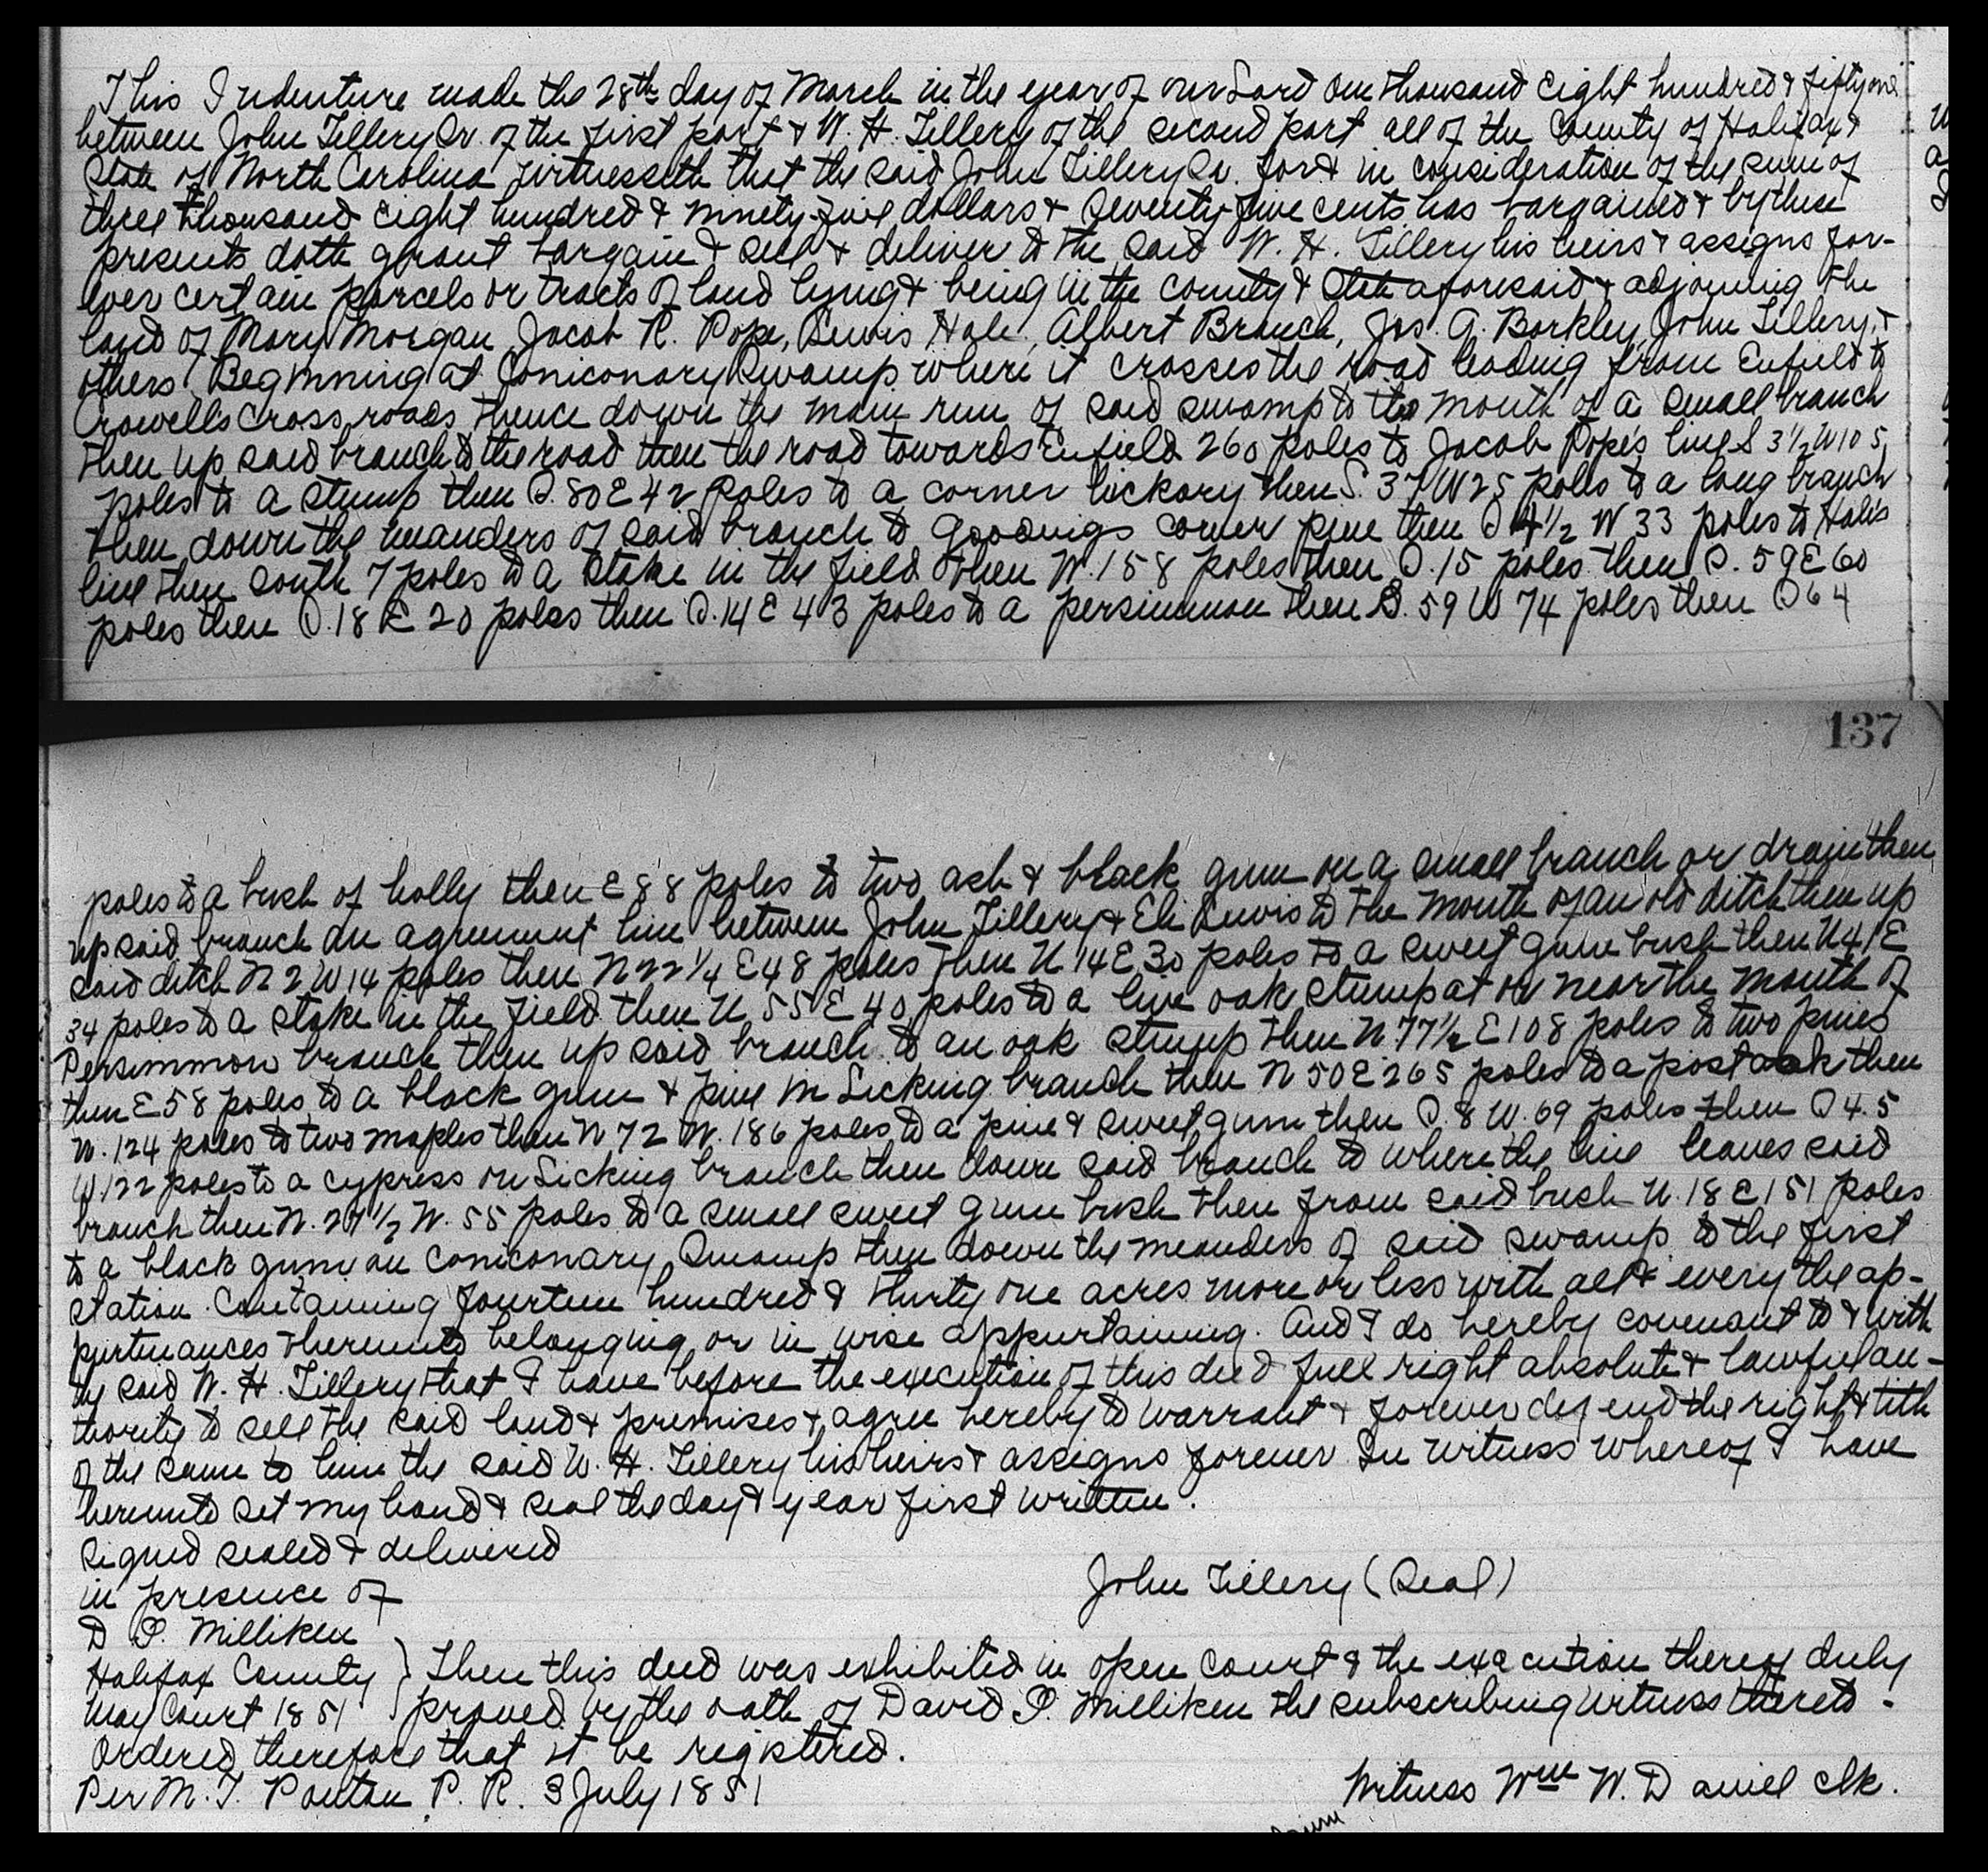 This Indenture made the 28th day of March in the year of our Lord one thousand eight hundred & fifty one
between John Tillery Sr. of the first part & W. H. Tillery of the second part all of the County of Halifax &
State of North Carolina witnesseth that the said John Tillery Sr. for & in consideration of the sum of
three thousand eight hundred & ninety five dollars & seventy five cents has bargained & by these
presents doth grant bargain & sell & deliver to the said W. H. Tillery his heirs & assigns for-
ever certain parcels or tracts of land lying & being in the county & State aforesaid & adjoining the
land of Mary Morgan, Jacob R. Pope, Lewis Hale, Albert Branch, Jas. A. Barkley, John Tillery, &
others. Beginning at Coniconary Swamp where it crosses the road leading from Enfield to
Crowells Cross roads thence down the main run of said swamp to the mouth of a small branch
then up said branch to the road then the road towards Enfield 260 poles to Jacob Pope's line S 3½ W 105
poles to a stump then S. 80 E 42 poles to a corner hickory then S. 37 W 25 poles to a long branch
then down the meanders of said branch to Goodwigs corner pine then S 4½ W 33 poles to Hale's
line then south 7 poles to a stake in the field then W. 158 poles then S. 15 poles then S. 59 E 60
poles then S. 18 E 20 poles then S. 14 E 43 poles to a persimmon then S. 59 W 74 poles then S 64
137
poles to a bush of holly then E 88 poles to two ash & black gum on a small branch or drain then
up said branch an agreement line between John Tillery & Eli Lewis to the mouth of an old ditch then up
said ditch N 2 W 14 poles then N 22¼ E 48 poles then N 14 E 30 poles to a sweet gum bush then N 41 E
34 poles to a stake in the field then N 55 E 40 poles to a live oak stump at or near the mouth of
Persimmon branch then up said branch to an oak stump then N. 77½ E 108 poles to two pines
then E 58 poles to a black gum & pine in Licking branch then N 50 E 265 poles to a post oak then
N. 124 poles to two maples then N 72 W. 186 poles to a pine & sweet gum then S. 8 W. 69 poles then S 4.5
W 122 poles to a cypress on Licking branch then down said branch to where the line leaves said
branch then N. 27½ W. 55 poles to a small sweet gum bush then from said bush N. 18 E 151 poles
to a black gum on Coniconary Swamp then down the meanders of said swamp to the first
station. Containing fourteen hundred & thirty one acres more or less with all & every the ap-
purtenances thereunto belonging or in wise appurtaining. And I do hereby covenant to & with
the said W. H. Tillery that I have before the execution of this deed full right absolute & lawful au-
thority to sell the said land & premises & agree hereby to warrant & forever defend the right & title
of the same to him the said W. H. Tillery his heirs & assigns forever In witness whereof I have
hereunto set my hand & seal the day & year first written.
Signed sealed & delivered
in presence of
John Tillery (Seal)
D P. Milliken
Halifax County } Then this deed was exhibited in open court & the execution thereof duly
May Court 1851 } proved by the oath of David P. Milliken the subscribing witness thereto.
Ordered therefore that it be registered.
Witness Wm W. Daniel clk.
Per M. T. Ponton P. R. 3 July 1851